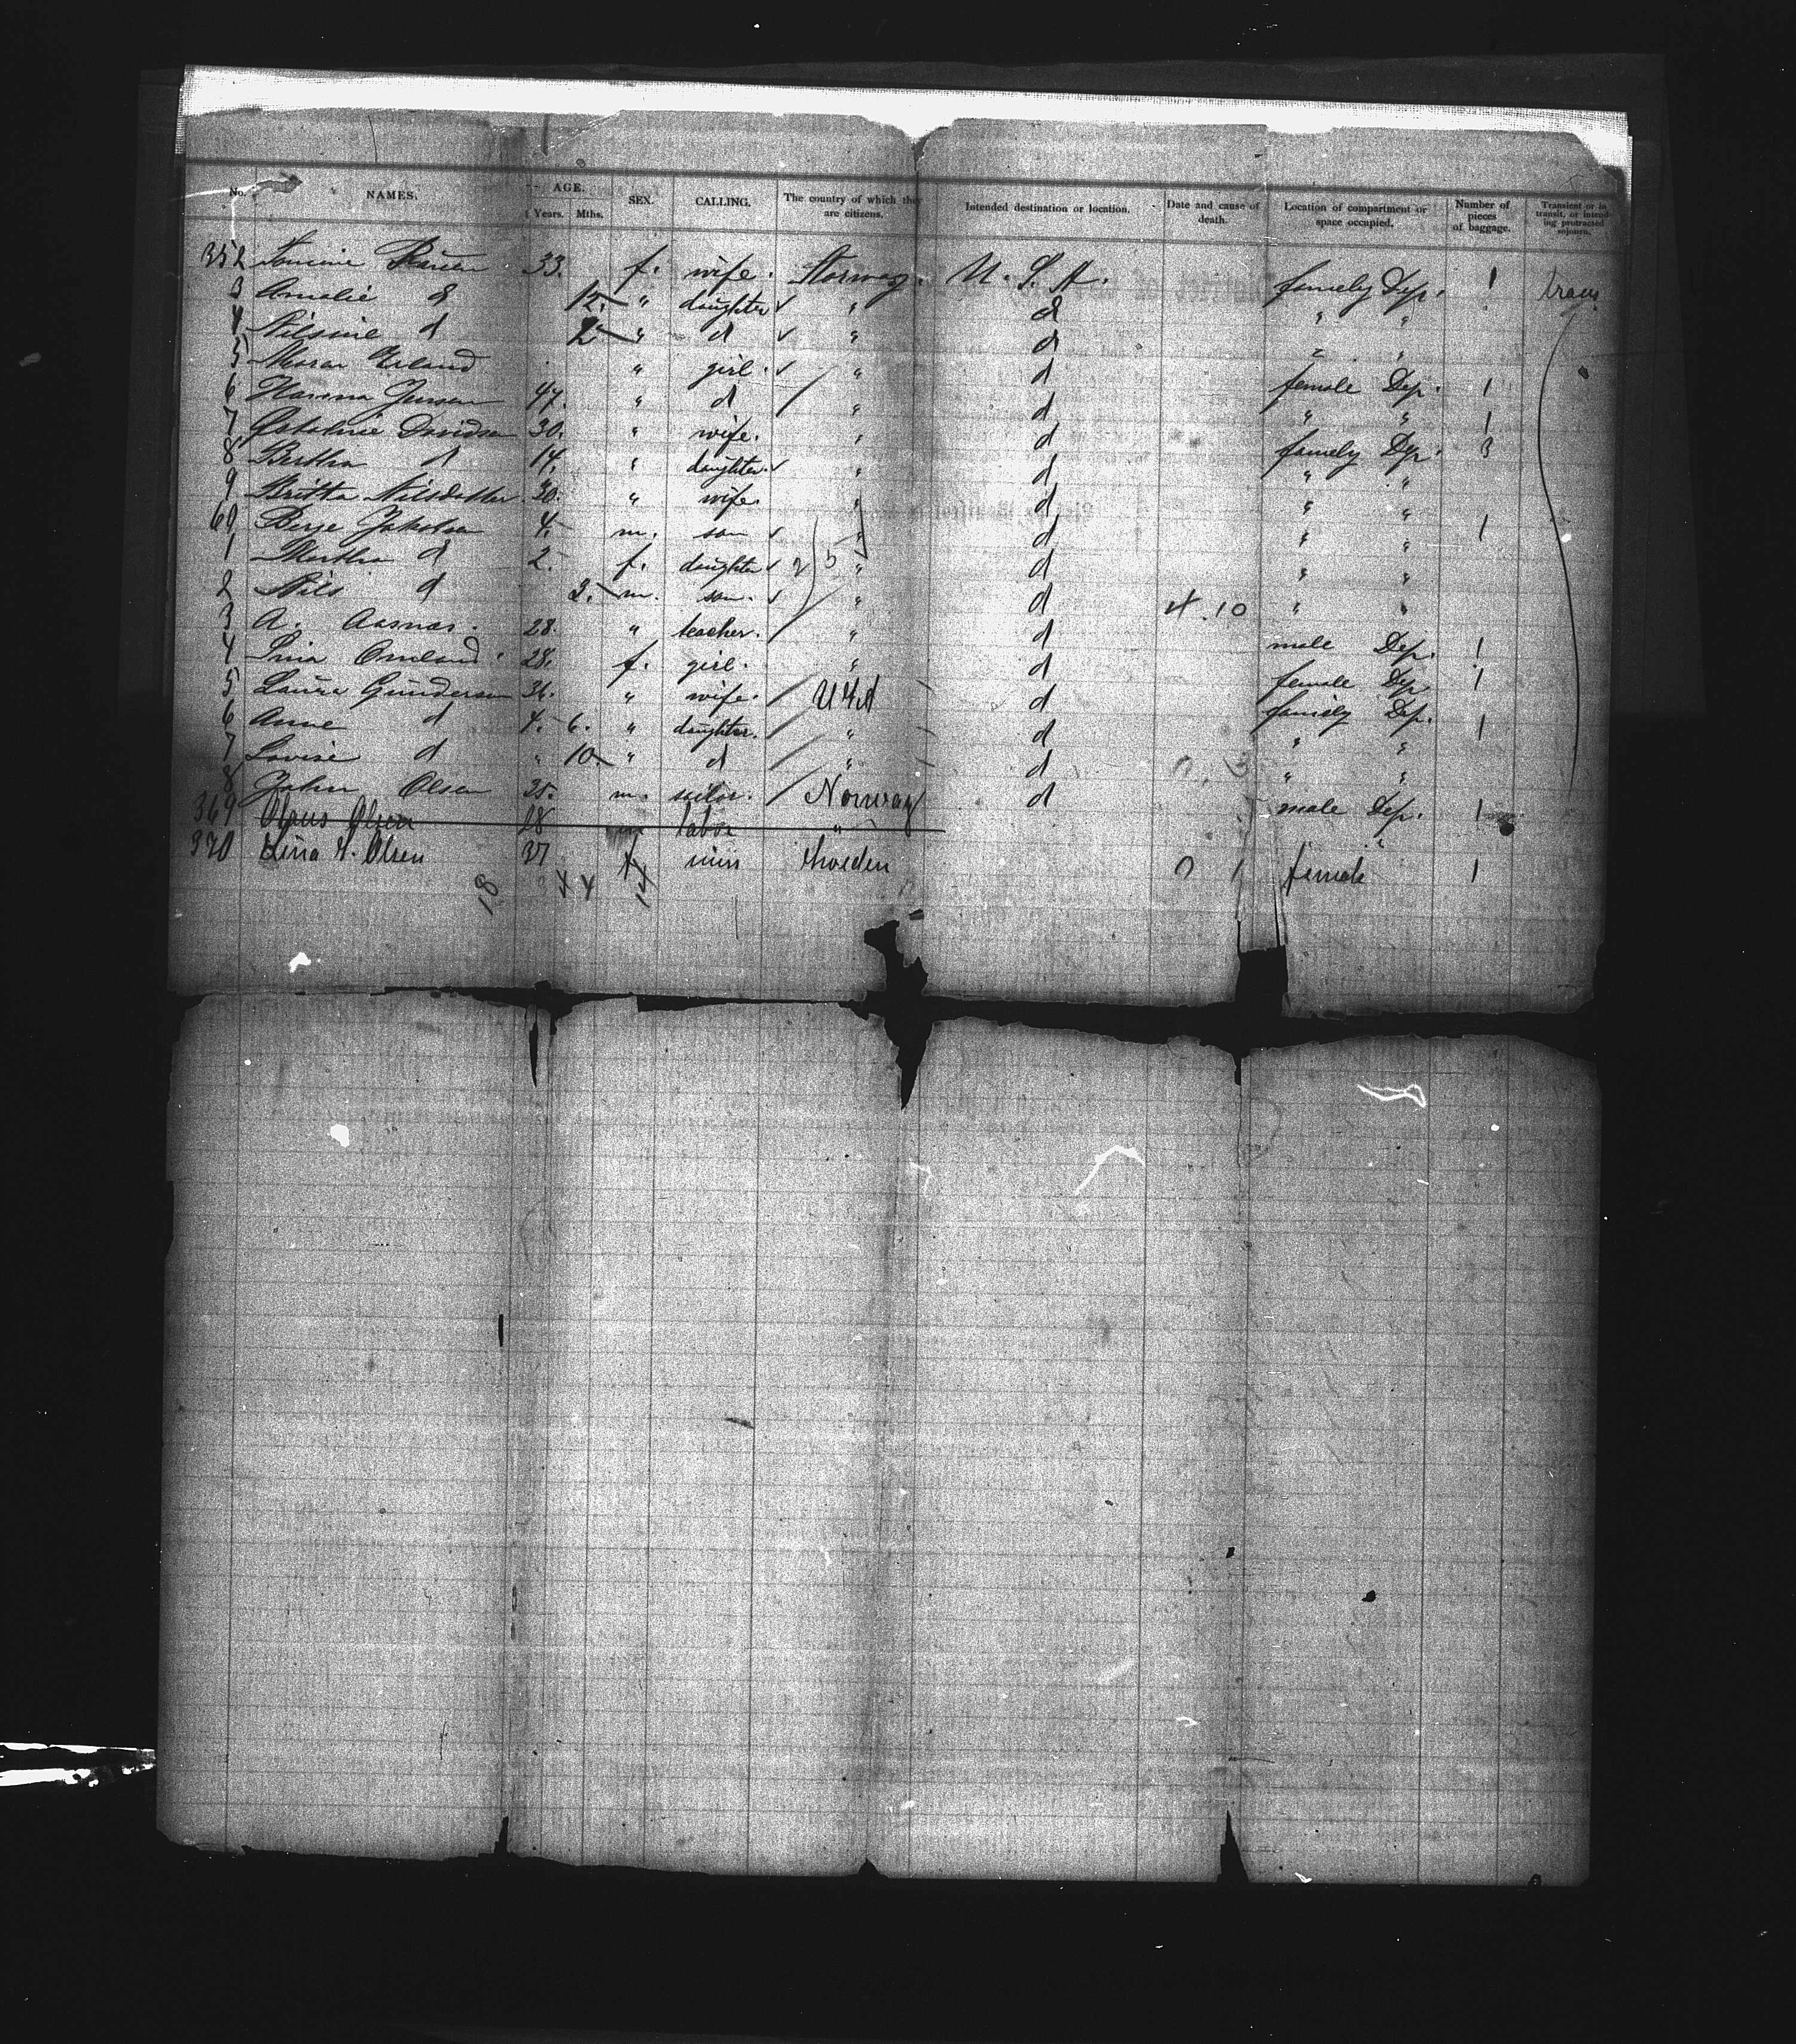 No. NAMES. AGE. Years. Mths. SEX. CALLING. The country of which they are citizens. Intended destination or location. Date and cause of death. Location of compartment or space occupied. Number of pieces of baggage. Transient or in transit, or intending protracted sojourn.
352 33. f. wife. Norway. U. S. A. family Dep. 1
3 Amalie d 12. " daughter ✓ " d " "
4 Nilsine d 2 " d ✓ " d " "
5 " girl. ✓ " d female Dep. 1
6 Jensen 47. " d / " d " " 1
7 Davidsen 30. " wife. " d family Dep. 3
8 Bertha d 14. " daughter. ✓ " d " "
9 Britta Nilsdatter 30. " wife. " d " "
60 Berge Jakobsen 4. m. son ✓ " d " " 1
1 Martha d 2. f. daughter ✓ 2 3 " d " "
2 Nils d 3. m. son. ✓ " d 4. 10 " "
3 A. Aasnæs. 28. " teacher. / " d male Dep. 1
4 Lina Omland. 28. f. girl. " d female Dep. 1
5 Laura Gundersen 36. " wife. / USA d family Dep.
6 Anne d 4. 6. " daughter. / " d " " 1
7 Lovise d " 10 " d / " d " "
8 John Olsen 35. m. sailor. / Norway d male Dep. 1
369 Olaus Olsen 28 m labor "
370 Lina Olsen 37 f Sweden female 1
18